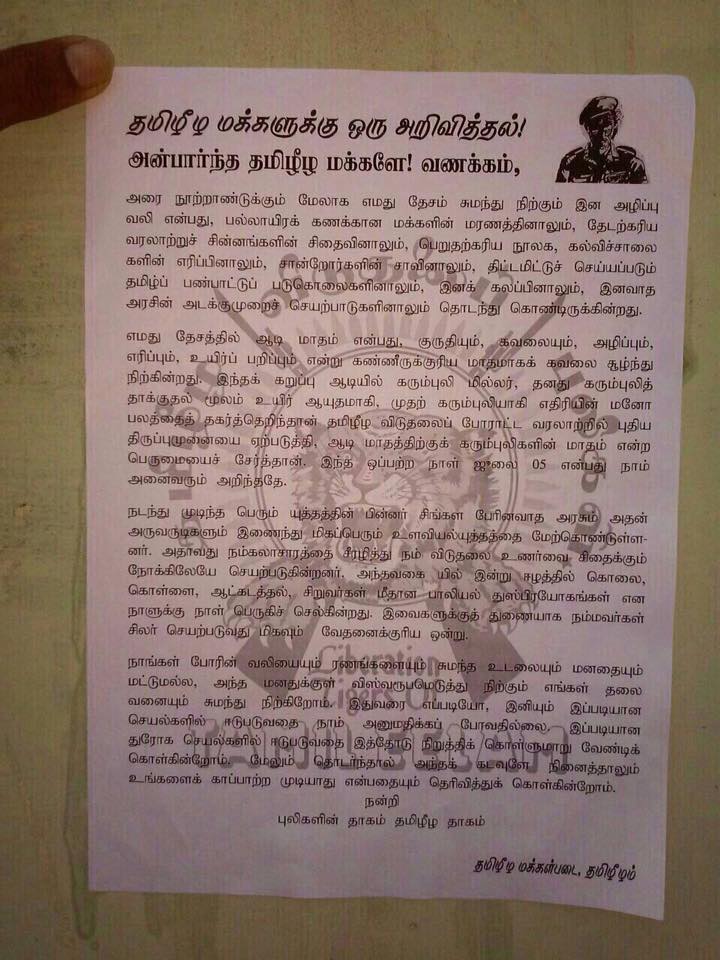 தமிழீழ மக்களுக்கு ஒரு அறிவித்தல்!
அன்பார்ந்த தமிழீழ மக்களே! வணக்கம்,
அரை நூற்றாண்டுக்கும் மேலாக எமது தேசம் சுமந்து நிற்கும் இன அழிப்பு
வலி என்பது, பல்லாயிரக் கணக்கான மக்களின் மரணத்தினாலும், தேடற்கரிய
வரலாற்றுச் சின்னங்களின் சிதைவினாலும், பெறுதற்கரிய நூலக, கல்விச்சாலை
களின் எரிப்பினாலும், சான்றோர்களின் சாவினாலும், திட்டமிட்டுச் செய்யப்படும்
தமிழ்ப் பண்பாட்டுப் படுகொலைகளினாலும், இனக் கலப்பினாலும், இனவாத
அரசின் அடக்குமுறைச் செயற்பாடுகளினாலும் தொடந்து கொண்டிருக்கின்றது.
எமது தேசத்தில் ஆடி மாதம் என்பது, குருதியும், கவலையும், அழிப்பும்,
எரிப்பும், உயிர்ப் பறிப்பும் என்று கண்ணீருக்குரிய மாதமாகக் கவலை சூழ்ந்து
நிற்கின்றது. இந்தக் கறுப்பு ஆடியில் கரும்புலி மில்லர், தனது கரும்புலித்
தாக்குதல் மூலம் உயிர் ஆயுதமாகி, முதற் கரும்புலியாகி எதிரியின் மனோ
பலத்தைத் தகர்த்தெறிந்தான் தமிழீழ விடுதலைப் போராட்ட வரலாற்றில் புதிய
திருப்புமுனையை ஏற்படுத்தி, ஆடி மாதத்திற்குக் கரும்புலிகளின் மாதம் என்ற
பெருமையைச் சேர்த்தான். இந்த ஒப்பற்ற நாள் ஜுலை 05 என்பது நாம்
அனைவரும் அறிந்ததே.
நடந்து முடிந்த பெரும் யுத்தத்தின் பின்னர் சிங்கள பேரினவாத அரசும் அதன்
அருவருடிகளும் இணைந்து மிகப்பெரும் உளவியல்யுத்தத்தை மேற்கொண்டுள்ள-
னர். அதாவது நம்கலாசாரத்தை சீரழித்து நம் விடுதலை உணர்வை சிதைக்கும்
நோக்கிலேயே செயற்படுகின்றனர். அந்தவகை யில் இன்று ஈழத்தில் கொலை,
கொள்ளை, ஆட்கடத்தல், சிறுவர்கள் மீதான பாலியல் துஸ்பிரயோகங்கள் என
நாளுக்கு நாள் பெருகிச் செல்கின்றது. இவைகளுக்குத் துணையாக நம்மவர்கள்
சிலர் செயற்படுவது மிகவும் வேதனைக்குரிய ஒன்று.
நாங்கள் போரின் வலியையும் ரணங்களையும் சுமந்த உடலையும் மனதையும்
மட்டுமல்ல, அந்த மனதுக்குள் விஸ்வரூபமெடுத்து நிற்கும் எங்கள் தலை
வனையும் சுமந்து நிற்கிறோம். இதுவரை எப்படியோ, இனியும் இப்படியான
செயல்களில் ஈடுபடுவதை நாம் அனுமதிக்கப் போவதில்லை, இப்படியான
துரோக செயல்களில் ஈடுபடுவதை இத்தோடு நிறுத்திக் கொள்ளுமாறு வேண்டிக்
கொள்கின்றோம். மேலும் தொடர்ந்தால் அந்தக் கடவுளே நினைத்தாலும்
உங்களைக் காப்பாற்ற முடியாது என்பதையும் தெரிவித்துக் கொள்கின்றோம்.
நன்றி
புலிகளின் தாகம் தமிழீழ தாகம்
தமிழீழ மக்கள்படை, தமிழீழம்
Liberation
Tigers Of
TAMILEELAM